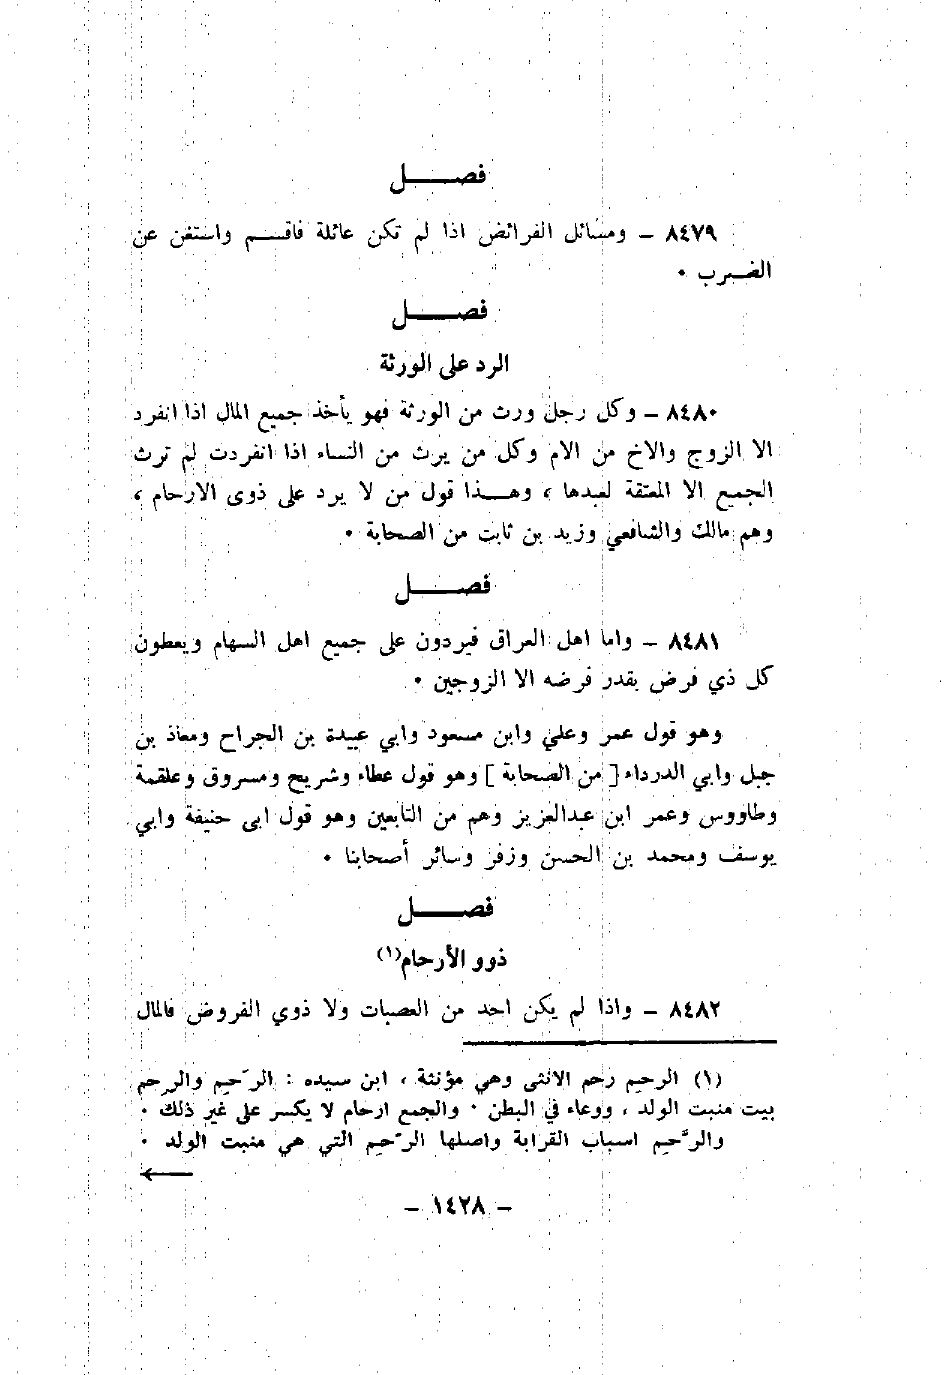 فصـــــل
٨٤٧٩ – ومسائل الفرائض اذا لم تكن عائلة فاقسم واستغن عن
الضرب ٠
فصـــــل
الرد على الورثة
٨٤٨٠ – وكل رجل ورث من الورثة فهو يأخذ جميع المال اذا انفرد
الا الزوج والاخ من الام وكل من يرث من النساء اذا انفردت لم ترث
الجميع الا المعتقة لعبدها ، وهـــذا قول من لا يرد على ذوى الارحام ،
وهم مالك والشافعي وزيد بن ثابت من الصحابة ٠
فصـــــل
٨٤٨١ – واما اهل العراق فيردون على جميع اهل السهام ويعطون
كل ذي فرض بقدر فرضه الا الزوجين ٠
وهو قول عمر وعلي وابن مسعود وابي عبيدة بن الجراح ومعاذ بن
جبل وابي الدرداء [ من الصحابة ] وهو قول عطاء وشريح ومسروق وعلقمة
وطاووس وعمر ابن عبدالعزيز وهم من التابعين وهو قول ابى حنيفة وابي
يوسف ومحمد بن الحسن وزفر وسائر أصحابنا ٠
فصـــــل
ذوو الأرحام(١)
٨٤٨٢ – واذا لم يكن احد من العصبات ولا ذوي الفروض فالمال
(١) الرحيم رحم الانثى وهي مؤنثة ، ابن سيده : الرَحِم والرِحم
بيت منبت الولد ، ووعاء في البطن ٠ والجمع ارحام لا يكسر على غير ذلك ٠
والرَّحِم اسباب القرابة واصلها الرَحِم التي هي منبت الولد ٠
– ١٤٢٨ –